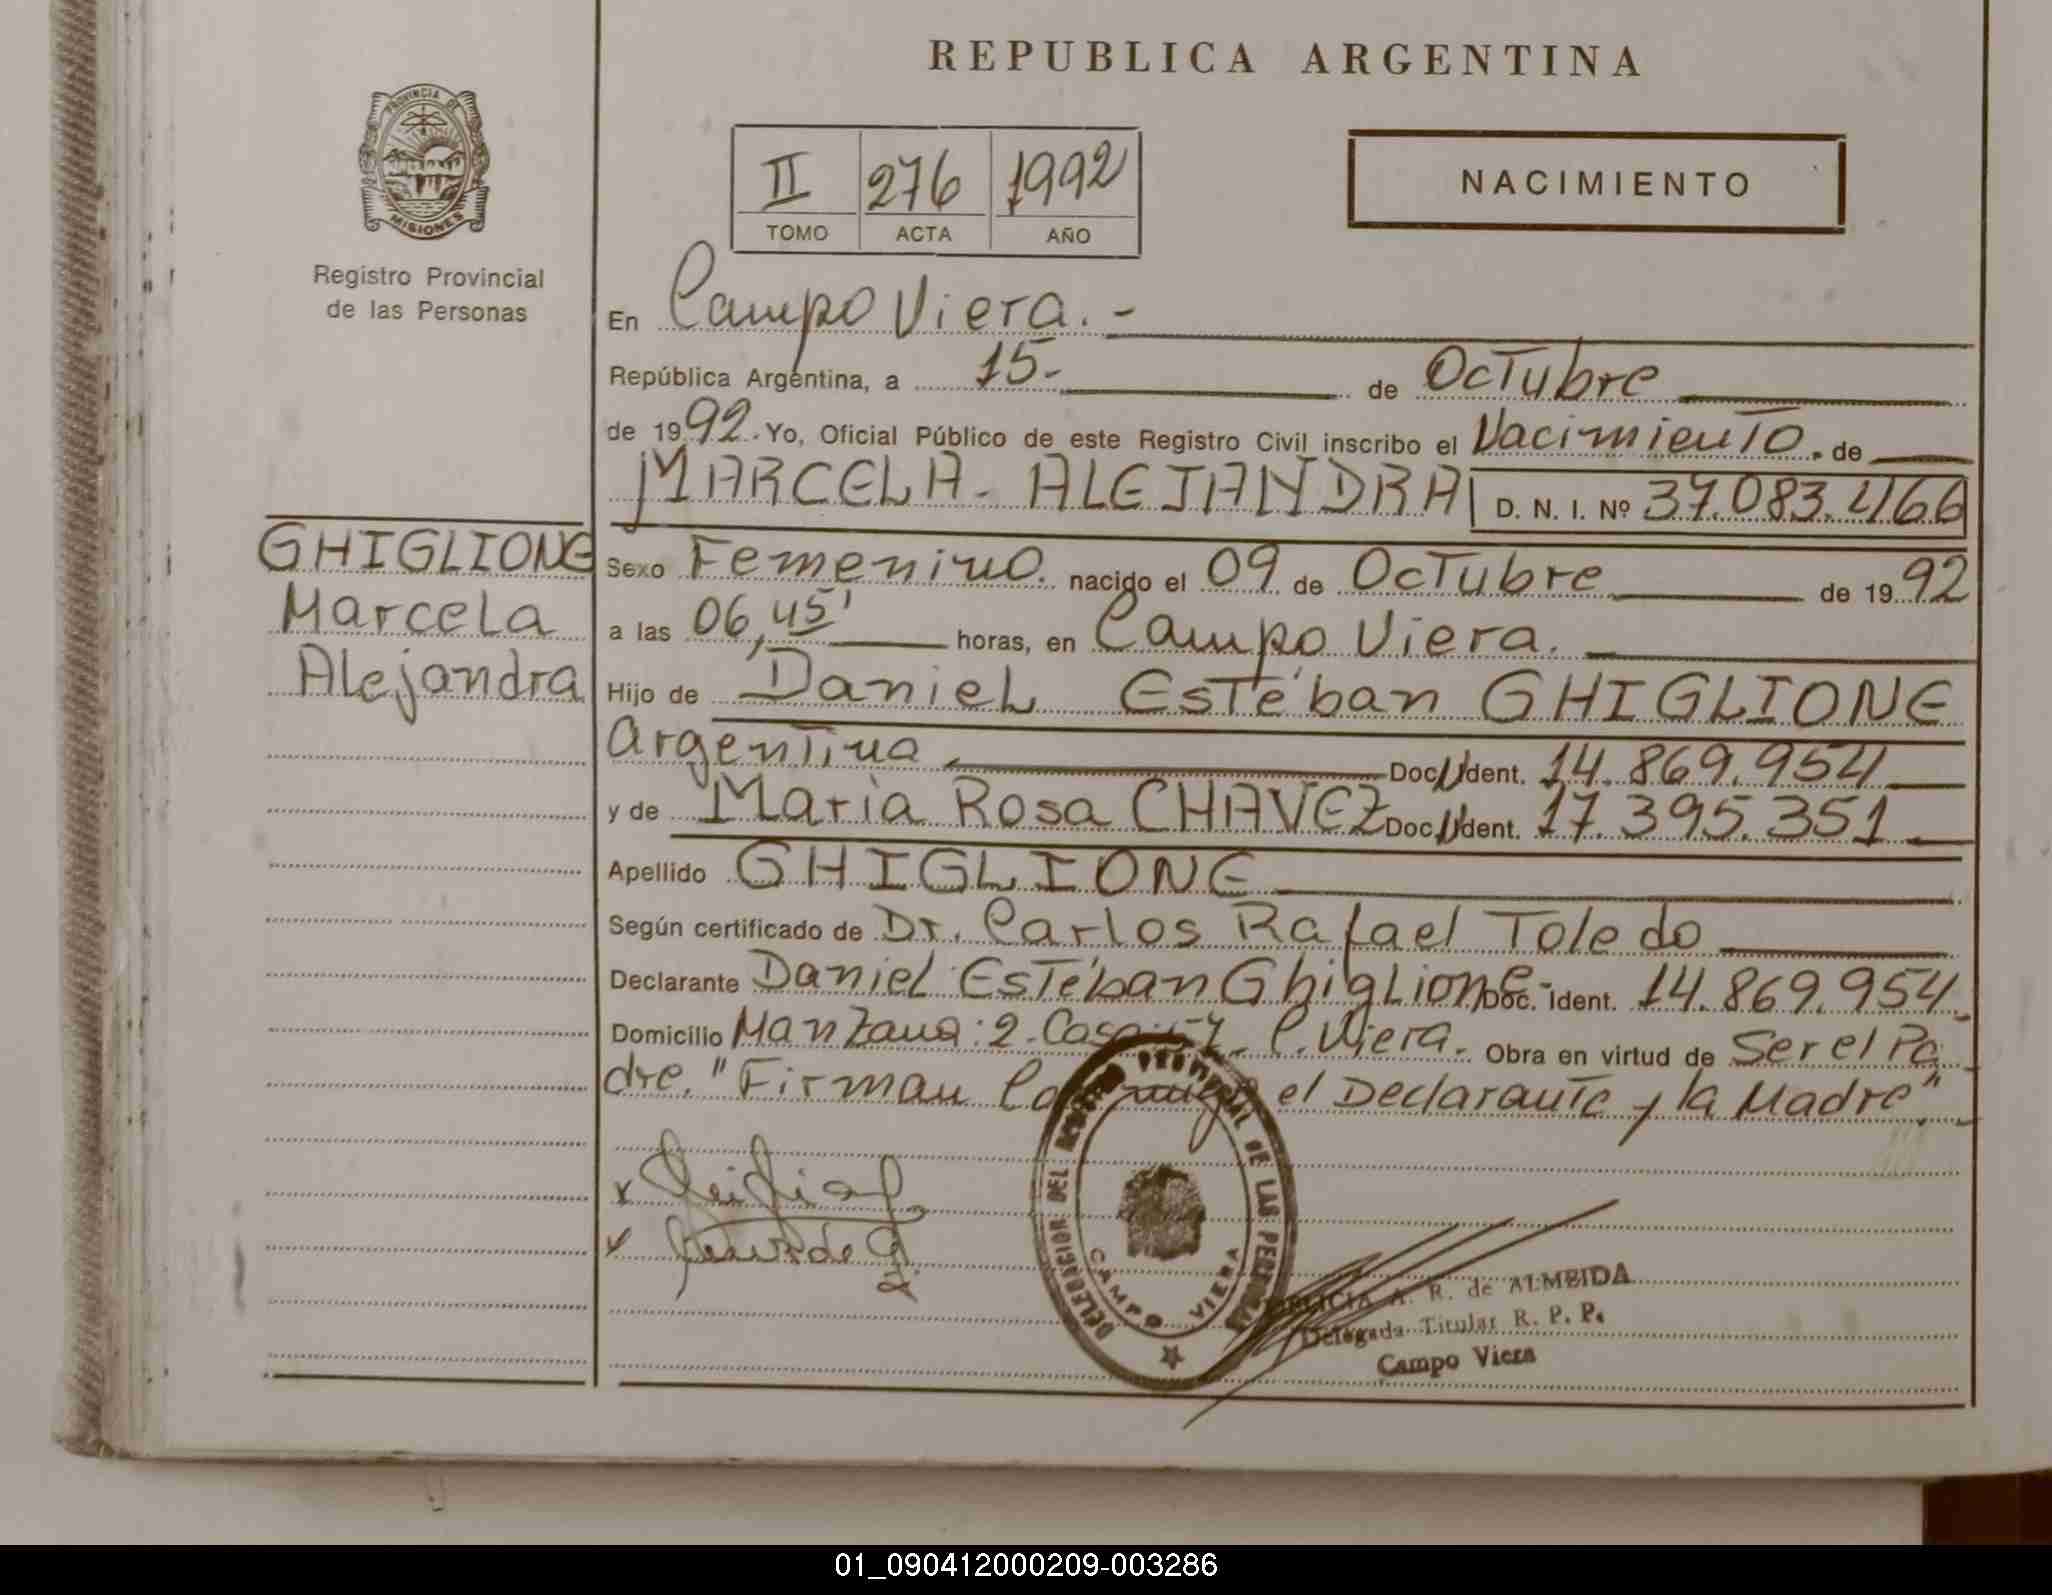 REPUBLICA ARGENTINA
PROVINCIA DE
MISIONES
Registro Provincial
de las Personas
II 276 1992
TOMO ACTA AÑO
NACIMIENTO
En Campo Viera.-
República Argentina, a 15- de Octubre
de 1992. Yo, Oficial Público de este Registro Civil inscribo el Nacimiento. de
MARCELA - ALEJANDRA D. N. I. Nº 37.083.466
GHIGLIONE
Marcela
Alejandra
Sexo Femenino. nacido el 09 de Octubre de 1992
a las 06,45' horas, en Campo Viera.
Hijo de Daniel Estéban GHIGLIONE
Argentina Doc. Ident. 14.869.954
y de Maria Rosa CHAVEZ Doc. Ident. 17.395.351
Apellido GHIGLIONE
Según certificado de Dr. Carlos Rafael Toledo
Declarante Daniel Estéban Ghiglione- Doc. Ident. 14.869.954
Domicilio Manzana: 2. Casa: C. Viera. Obra en virtud de Ser el Pa
dre. "Firman el Declarante y la Madre"
DELEGACION DEL REGISTRO PROVINCIAL DE LAS PERSONAS
CAMPO VIERA
A. R. de ALMEIDA
Delegada Titular R. P. P.
Campo Viera
01_090412000209-003286